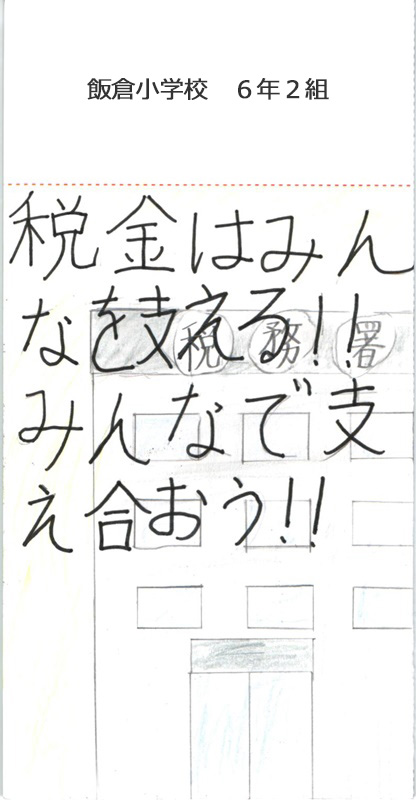 飯倉小学校　６年２組
税金はみん
なを支える!!
税務署
みんなで支
え合おう!!